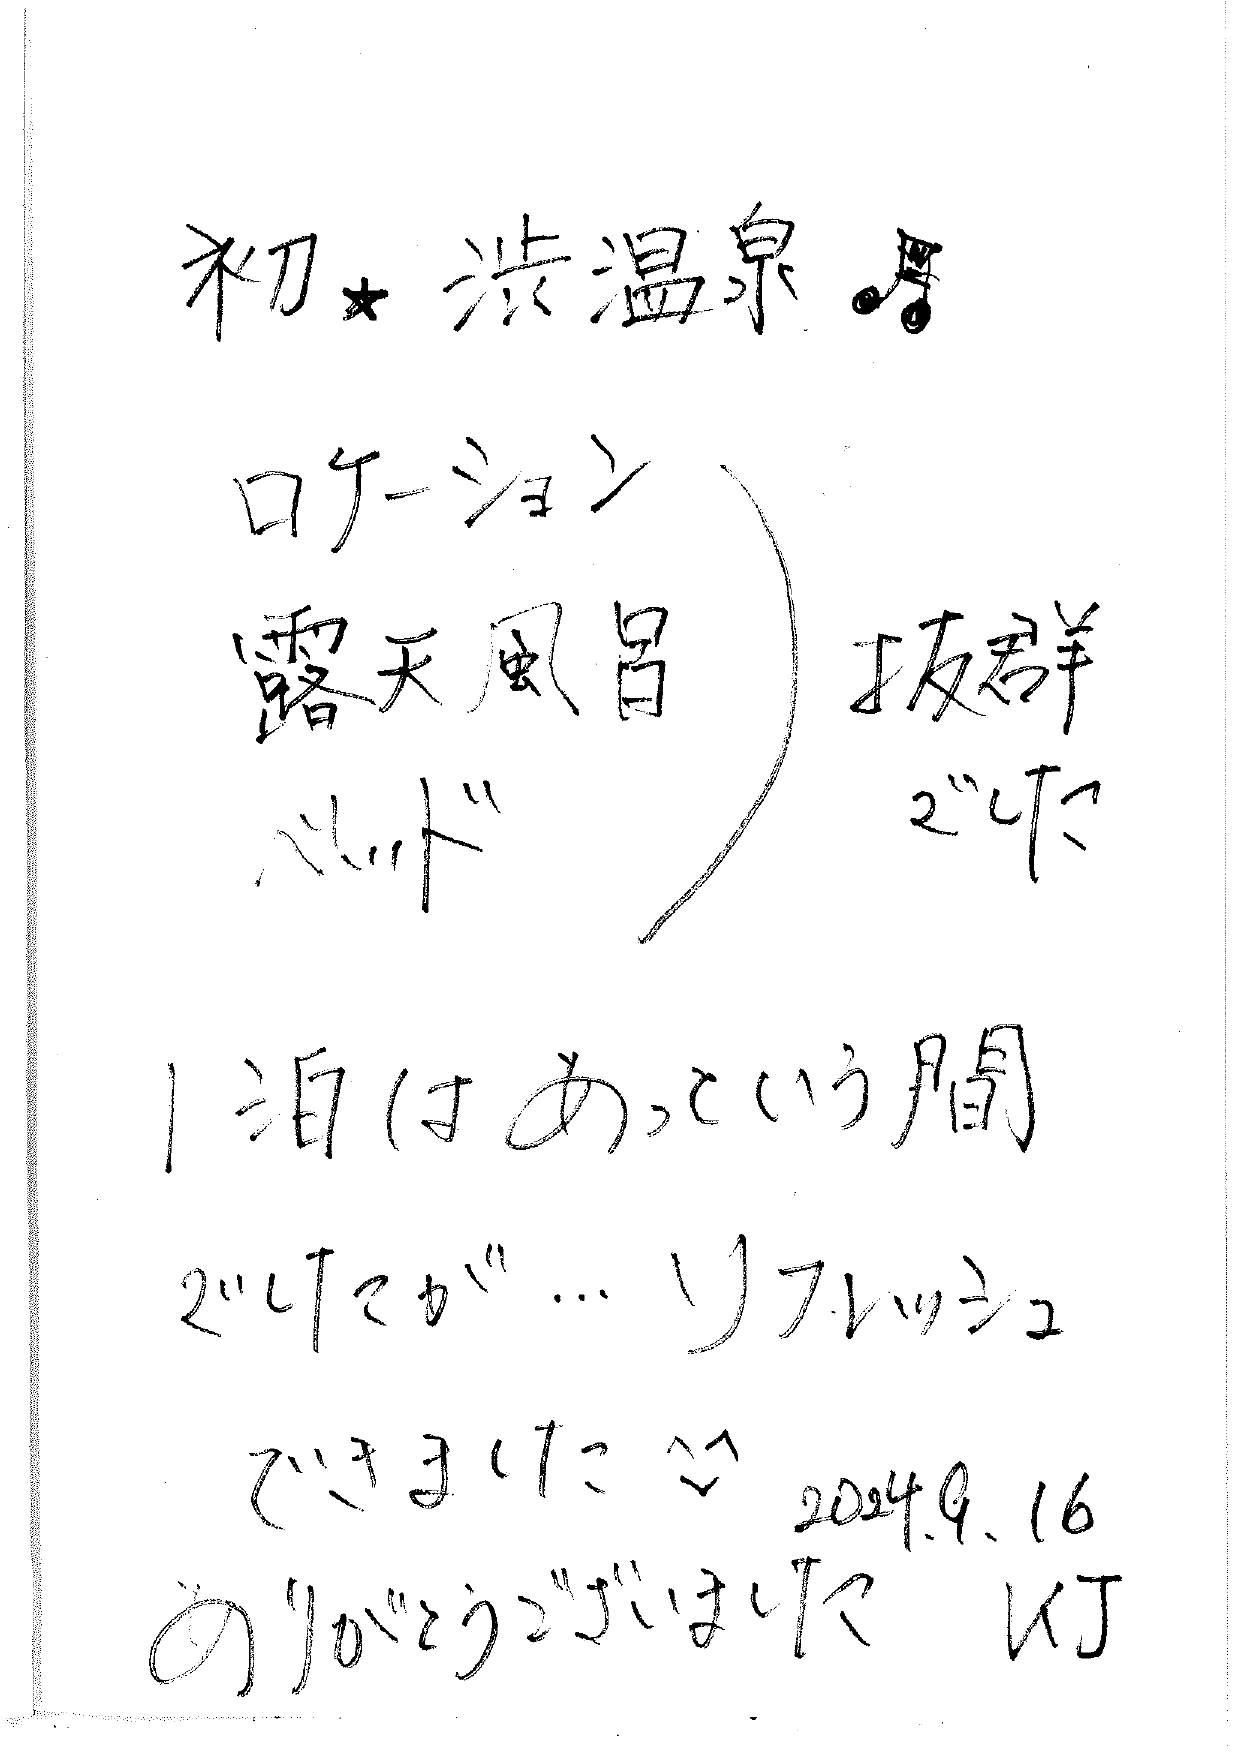 初★渋温泉♫
ロケーション
露天風呂
ベッド
抜群
でした
1泊はあっという間
でしたが…リフレッシュ
できました
2024.9.16
ありがとうございました
KJ